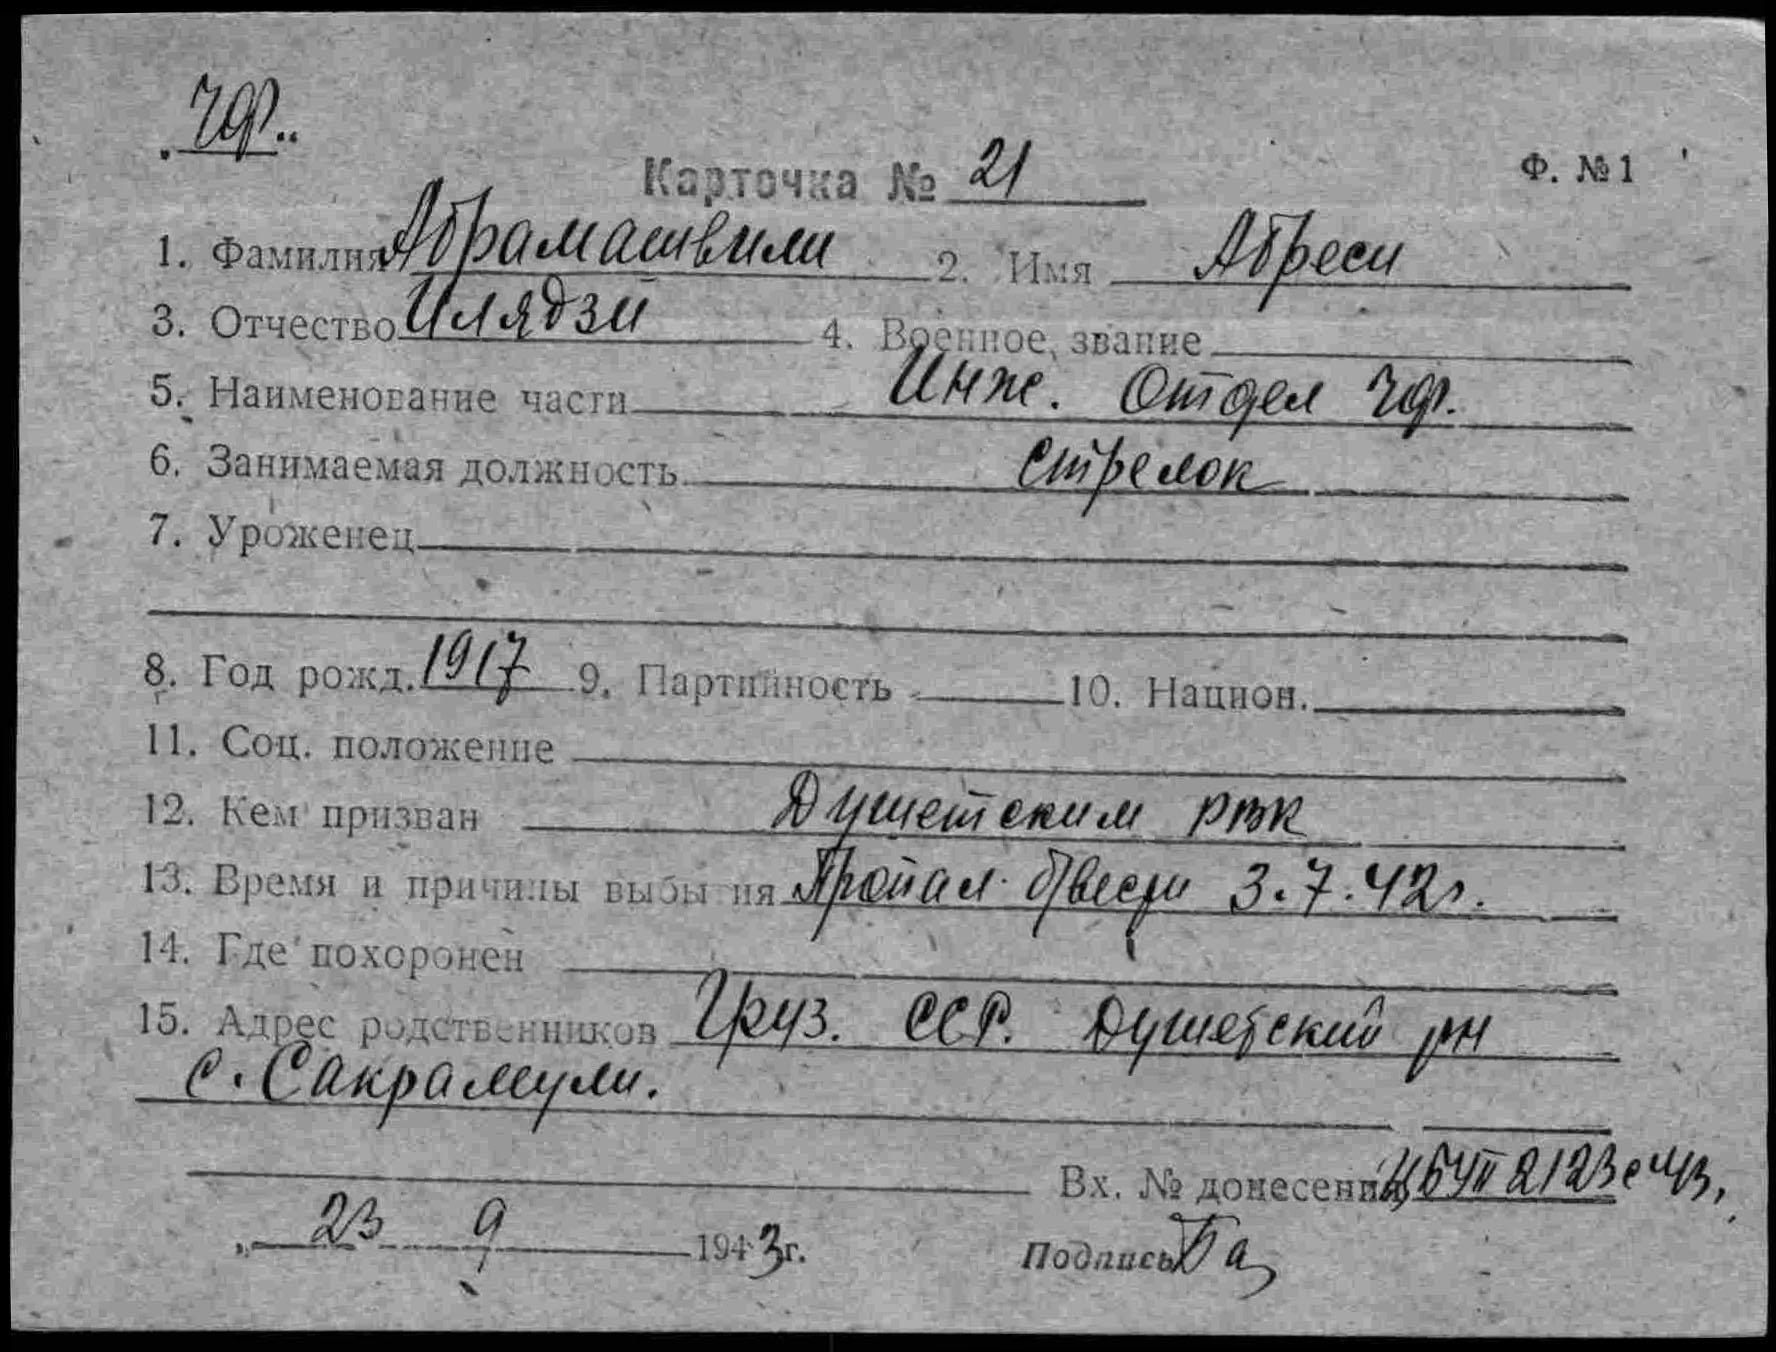 ЧФ.
Карточка № 21
Ф. № 1
1. Фамилия Абрамашвили 2. Имя Абреси
3. Отчество Илядзи 4. Военное звание
5. Наименование части Инж. Отдел ЧФ.
6. Занимаемая должность стрелок
7. Уроженец
8. Год рожд. 1917 9. Партийность 10. Национ.
11. Соц. положение
12. Кем призван Душетским РВК
13. Время и причины выбытия Пропал б/вести 3.7.42г.
14. Где похоронен
15. Адрес родственников Груз. ССР. Душетский рн
с. Сакрамули.
Вх. № донесения ЦБУП 2123с 43.
„ 23 9 1943г.
Подпись Ба